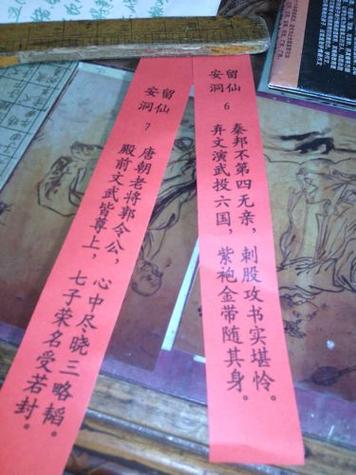 留仙
安洞
6
秦邦不第四无亲，刺股攻书实堪怜。
弃文演武投六国，紫袍金带随其身。
留仙
安洞
7
唐朝老将郭令公，心中尽晓三略韬。
殿前文武皆尊上，七子荣名受若封。